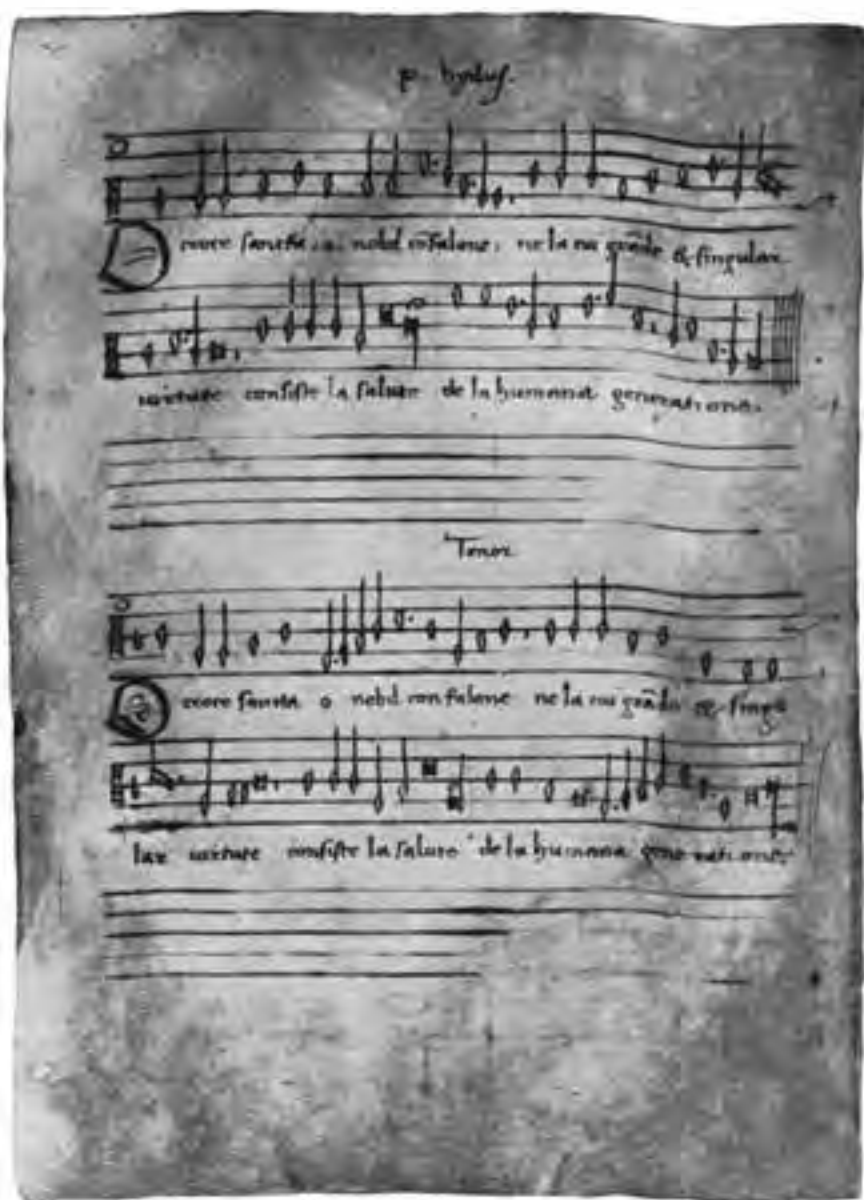 O croce sancta o nobil confalone ne la tua grade & singular
uirtute consiste la salute de la humana generatione.
Tenor
O croce sancta o nobil confalone ne la tua grade & singu
lar uirtute consiste la salute de la humana generatione